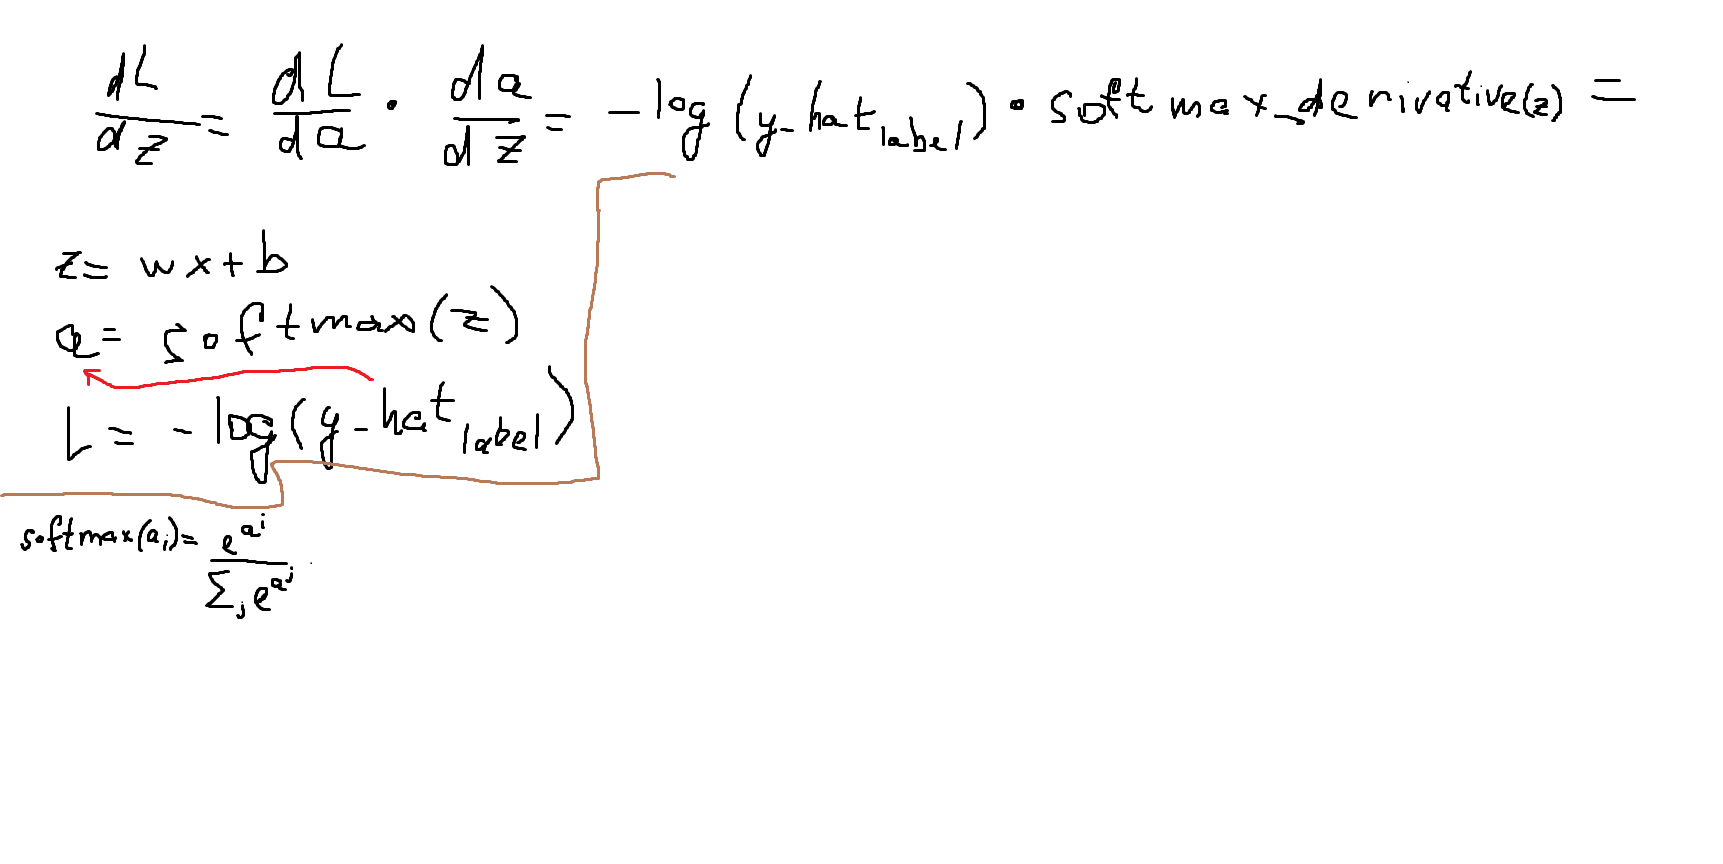 dL/dz = dL/da · da/dz = -log(y-hat_label) · softmax_derivative(z) =
z = wx + b
a = softmax(z)
L = -log(y-hat_label)
softmax(a_i) = e^{a^i} / Σ_j e^{a^j}